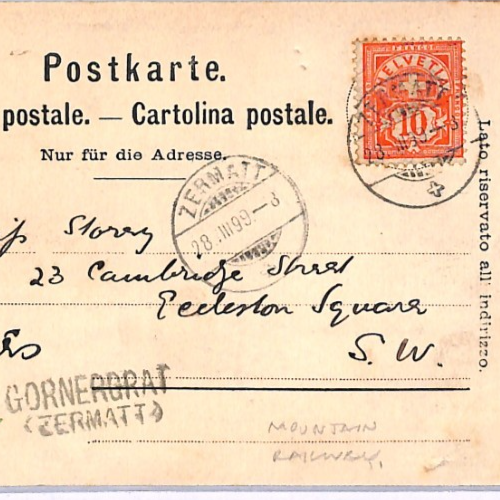 Postkarte.
postale. — Cartolina postale.
Nur für die Adresse.
FRANCO
HELVETIA
10
ZERMATT
28.III.99–8
ZERMATT
28.III.99–8
Lato riservato all' indirizzo.
Storey
23 Cambridge Street
Eccleston Square
S. W.
GORNERGRAT
(ZERMATT)
MOUNTAIN
RAILWAY.